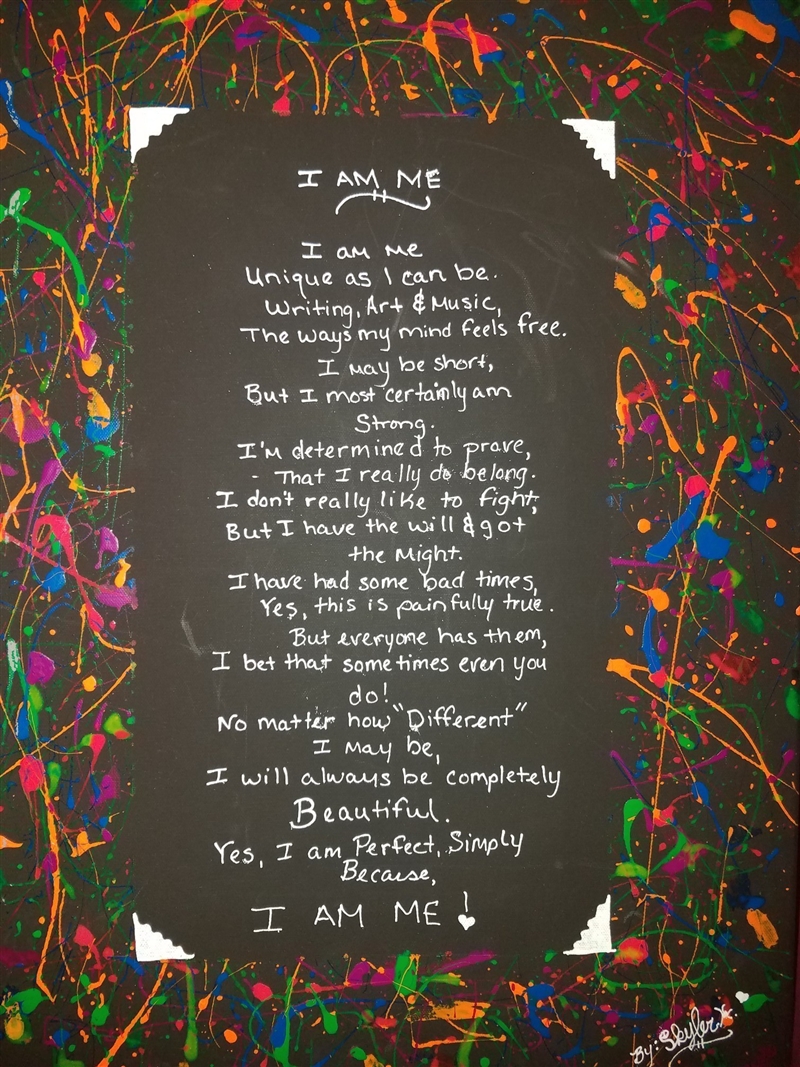 I AM ME
I am me
Unique as I can be.
Writing, Art & Music,
The ways my mind feels free.
I may be short,
But I most certainly am
Strong.
I'm determined to prove,
- That I really do belong.
I don't really like to fight,
But I have the will & got
the Might.
I have had some bad times,
Yes, this is painfully true.
But everyone has them,
I bet that sometimes even you
do!
No matter how "Different"
I May be,
I will always be completely
Beautiful.
Yes, I am Perfect, Simply
Because,
I AM ME!
By: Skyler